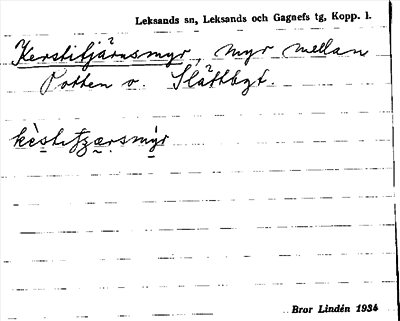 Leksands sn, Leksands och Gagnefs tg, Kopp. l.
Kerstitjärnsmyr, myr mellan
Potten o. Slättbgt.
Bror Lindén 1934